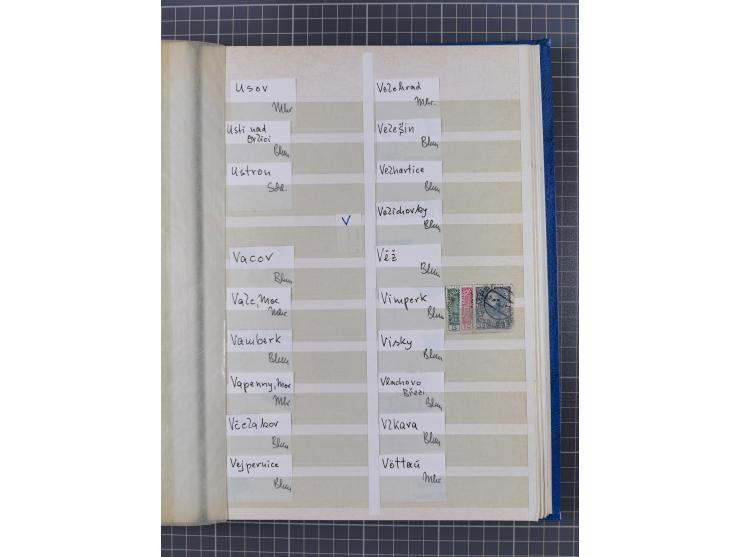 Usov
Mhr
Usti nad
Orlici
Bhm
Ustron
V
Vacov
Bhm
Vale, Mor
Mhr
Vamberk
Bhm
Vapenny, Mor
Mhr
Včelakov
Bhm
Vejpernice
Bhm
Velehrad
Mhr.
Velešin
Bhm
Velhartice
Bhm
Bhm
Věž
Bhm
Vimperk
Bhm
Visky
Bhm
Vlachovo
Březi
Bhm
Vlkava
Bhm
Vöttaü
Mhr